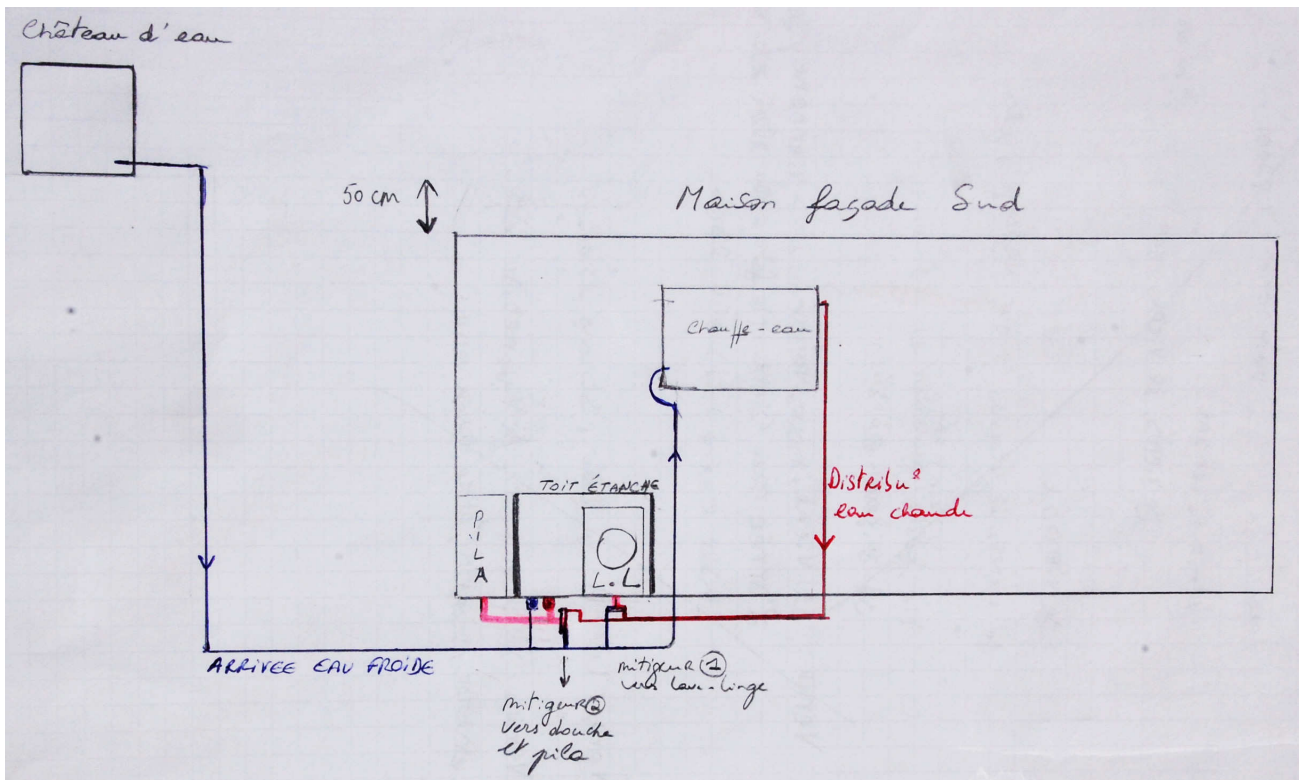 Château d'eau
50 cm
Maison façade Sud
Chauffe-eau
TOIT ÉTANCHE
P
I
L
A
L.L
Distribu°
eau chaude
ARRIVÉE EAU FROIDE
mitigeur 1
vers lave-linge
mitigeur 2
vers douche
et pila